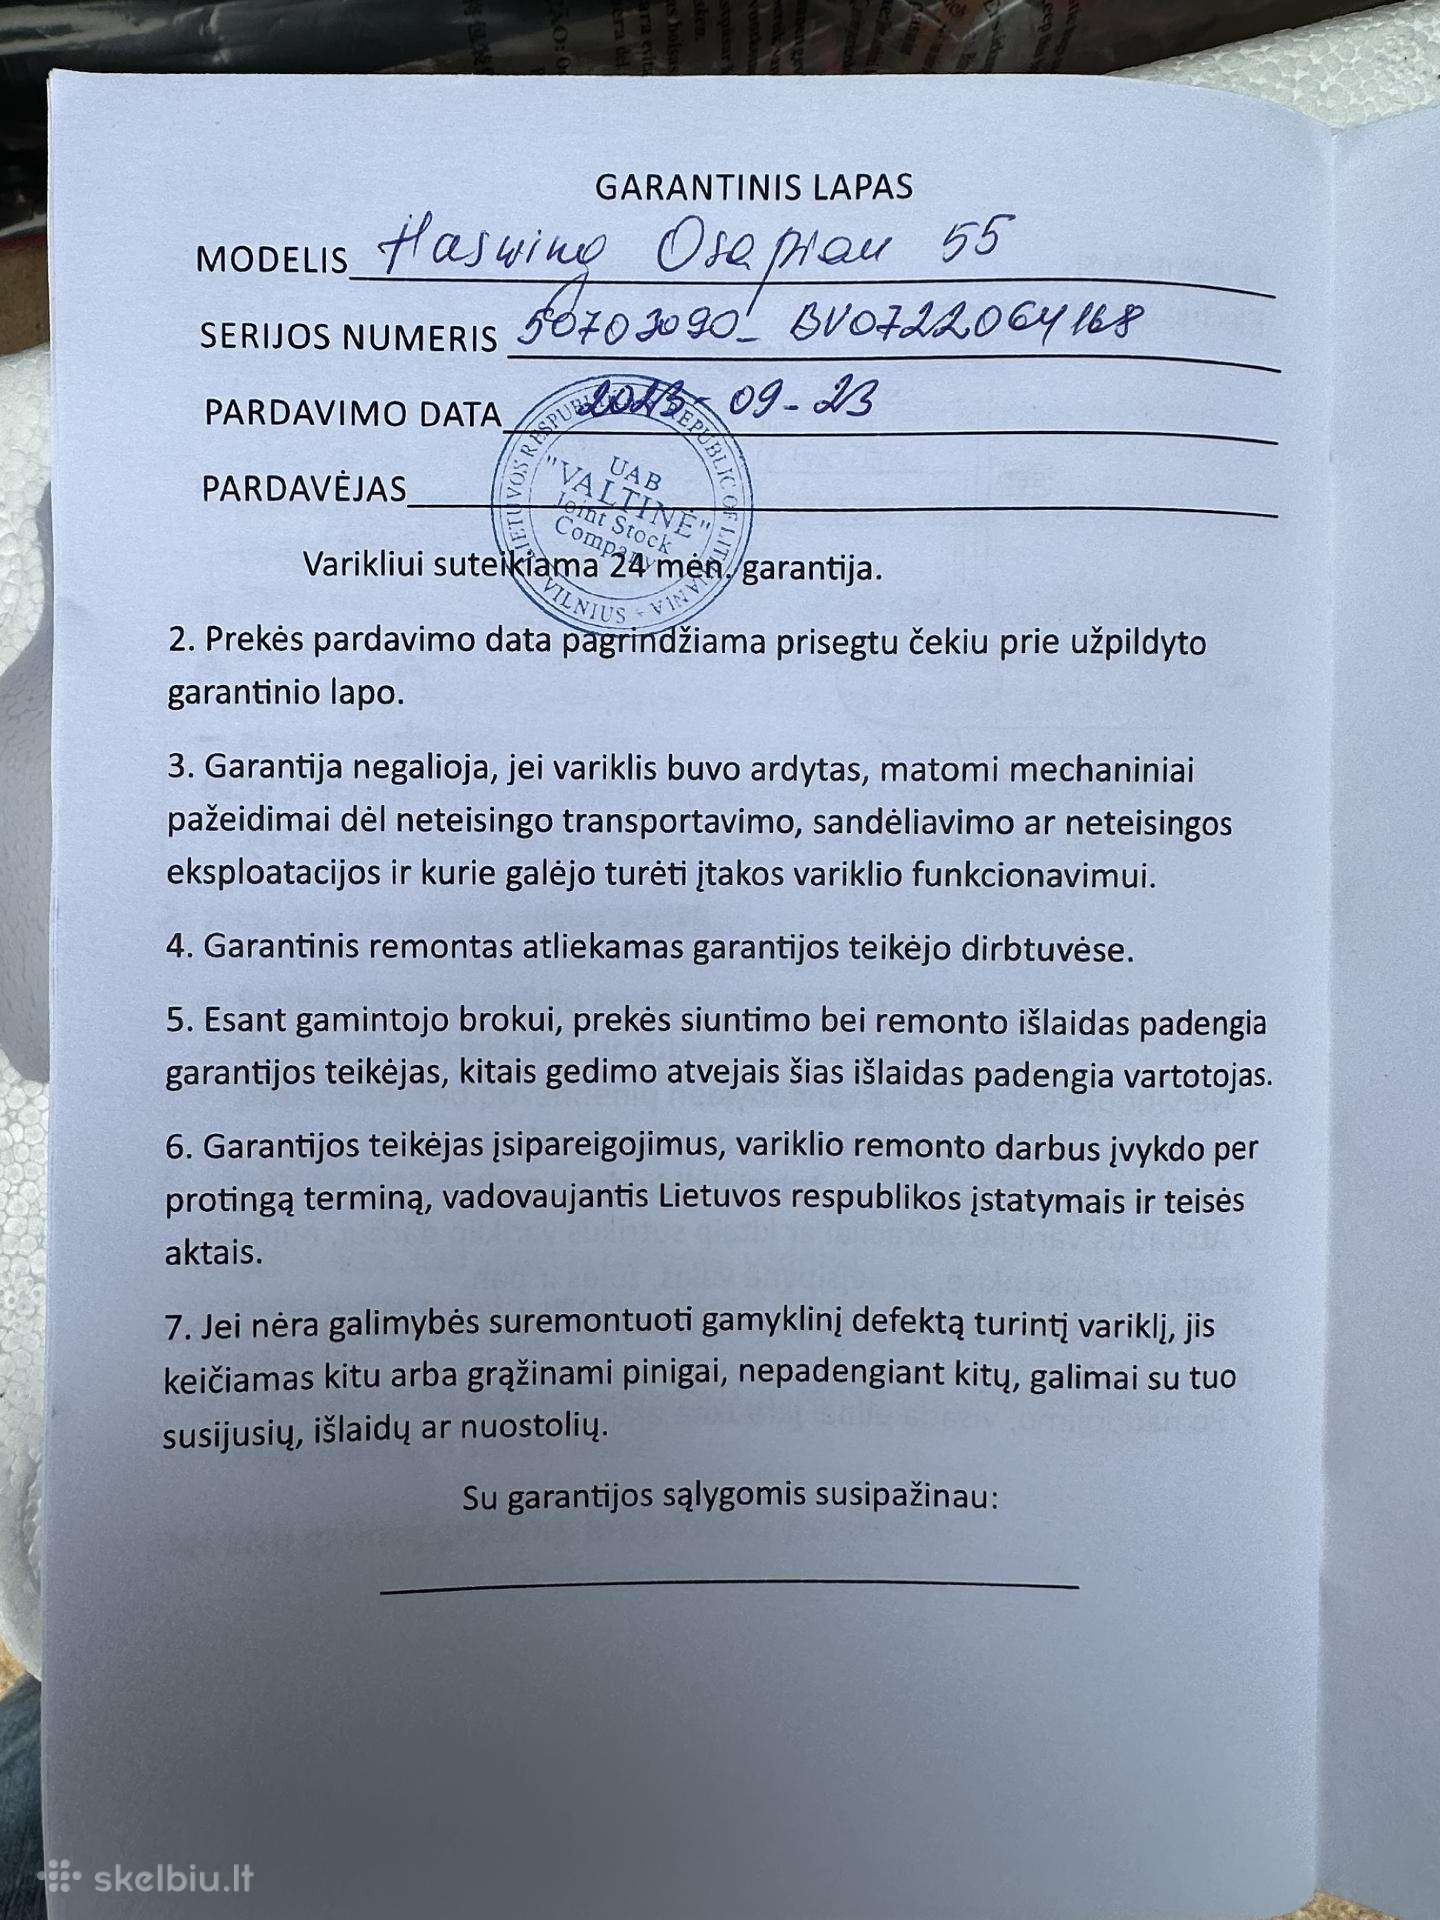 GARANTINIS LAPAS
MODELIS Haswing Osapian 55
SERIJOS NUMERIS 50703090- BV0722064168
PARDAVIMO DATA 2023-09-23
PARDAVĖJAS
LIETUVOS RESPUBLIKA REPUBLIC OF LITHUANIA VILNIUS
UAB
"VALTINĖ"
Joint Stock
Company
Varikliui suteikiama 24 mėn. garantija.
2. Prekės pardavimo data pagrindžiama prisegtu čekiu prie užpildyto
garantinio lapo.
3. Garantija negalioja, jei variklis buvo ardytas, matomi mechaniniai
pažeidimai dėl neteisingo transportavimo, sandėliavimo ar neteisingos
eksploatacijos ir kurie galėjo turėti įtakos variklio funkcionavimui.
4. Garantinis remontas atliekamas garantijos teikėjo dirbtuvėse.
5. Esant gamintojo brokui, prekės siuntimo bei remonto išlaidas padengia
garantijos teikėjas, kitais gedimo atvejais šias išlaidas padengia vartotojas.
6. Garantijos teikėjas įsipareigojimus, variklio remonto darbus įvykdo per
protingą terminą, vadovaujantis Lietuvos respublikos įstatymais ir teisės
aktais.
7. Jei nėra galimybės suremontuoti gamyklinį defektą turintį variklį, jis
keičiamas kitu arba grąžinami pinigai, nepadengiant kitų, galimai su tuo
susijusių, išlaidų ar nuostolių.
Su garantijos sąlygomis susipažinau:
skelbiu.lt